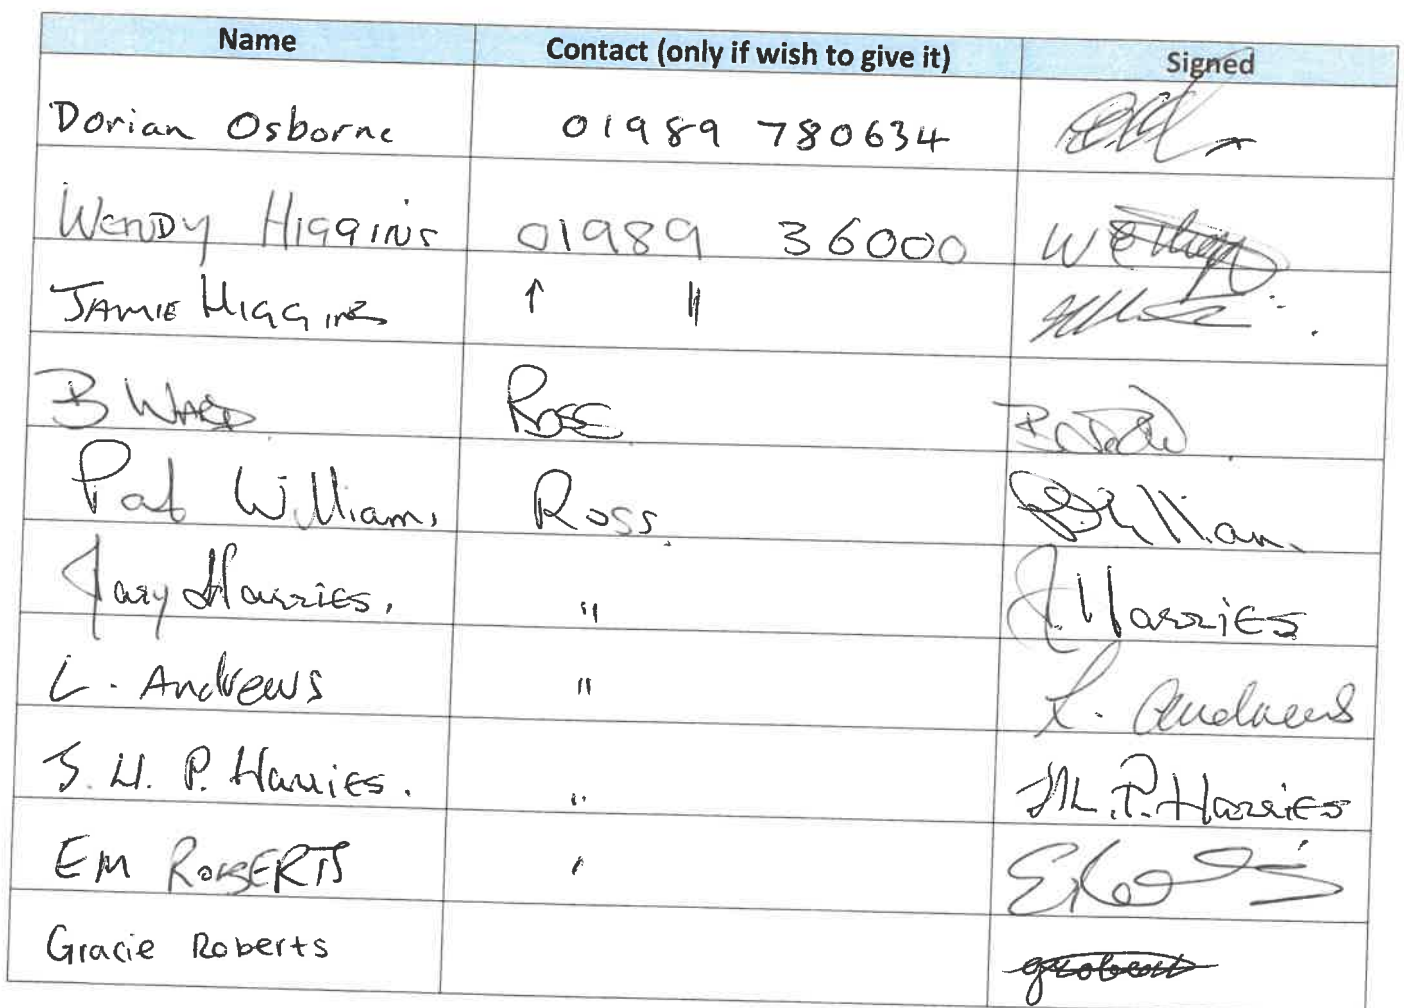 Name Contact (only if wish to give it) Signed
Dorian Osborne 01989 780634
WENDY HIGGINS 01989 36000
JAMIE HIGGINS ↑ "
B WARD ROSS
Pat Williams Ross
Harries. " Harries
L. Andrews " L. Andrews
S. H. P. Harries. " P. Harries
EM ROBERTS "
Gracie Roberts groberts